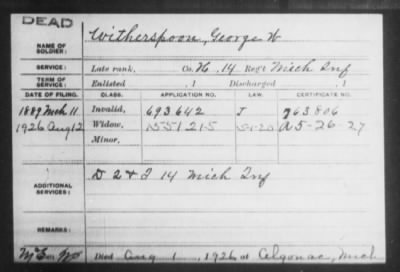 DEAD
NAME OF SOLDIER: Witherspoon, George W
SERVICE: Late rank, Co. H, 14 Reg't Mich Inf
TERM OF SERVICE: Enlisted , 1 Discharged , 1
DATE OF FILING. CLASS. APPLICATION NO. LAW. CERTIFICATE NO.
1889 Mch 11 Invalid, 693642 J 763806
1926 Aug 12 Widow, 1551215 5-1-20 A 5-26-27
Minor,
ADDITIONAL SERVICES: D 2 & I 14 Mich Inf
REMARKS:
Died Aug 1, 1926 at Algonac, Mich.